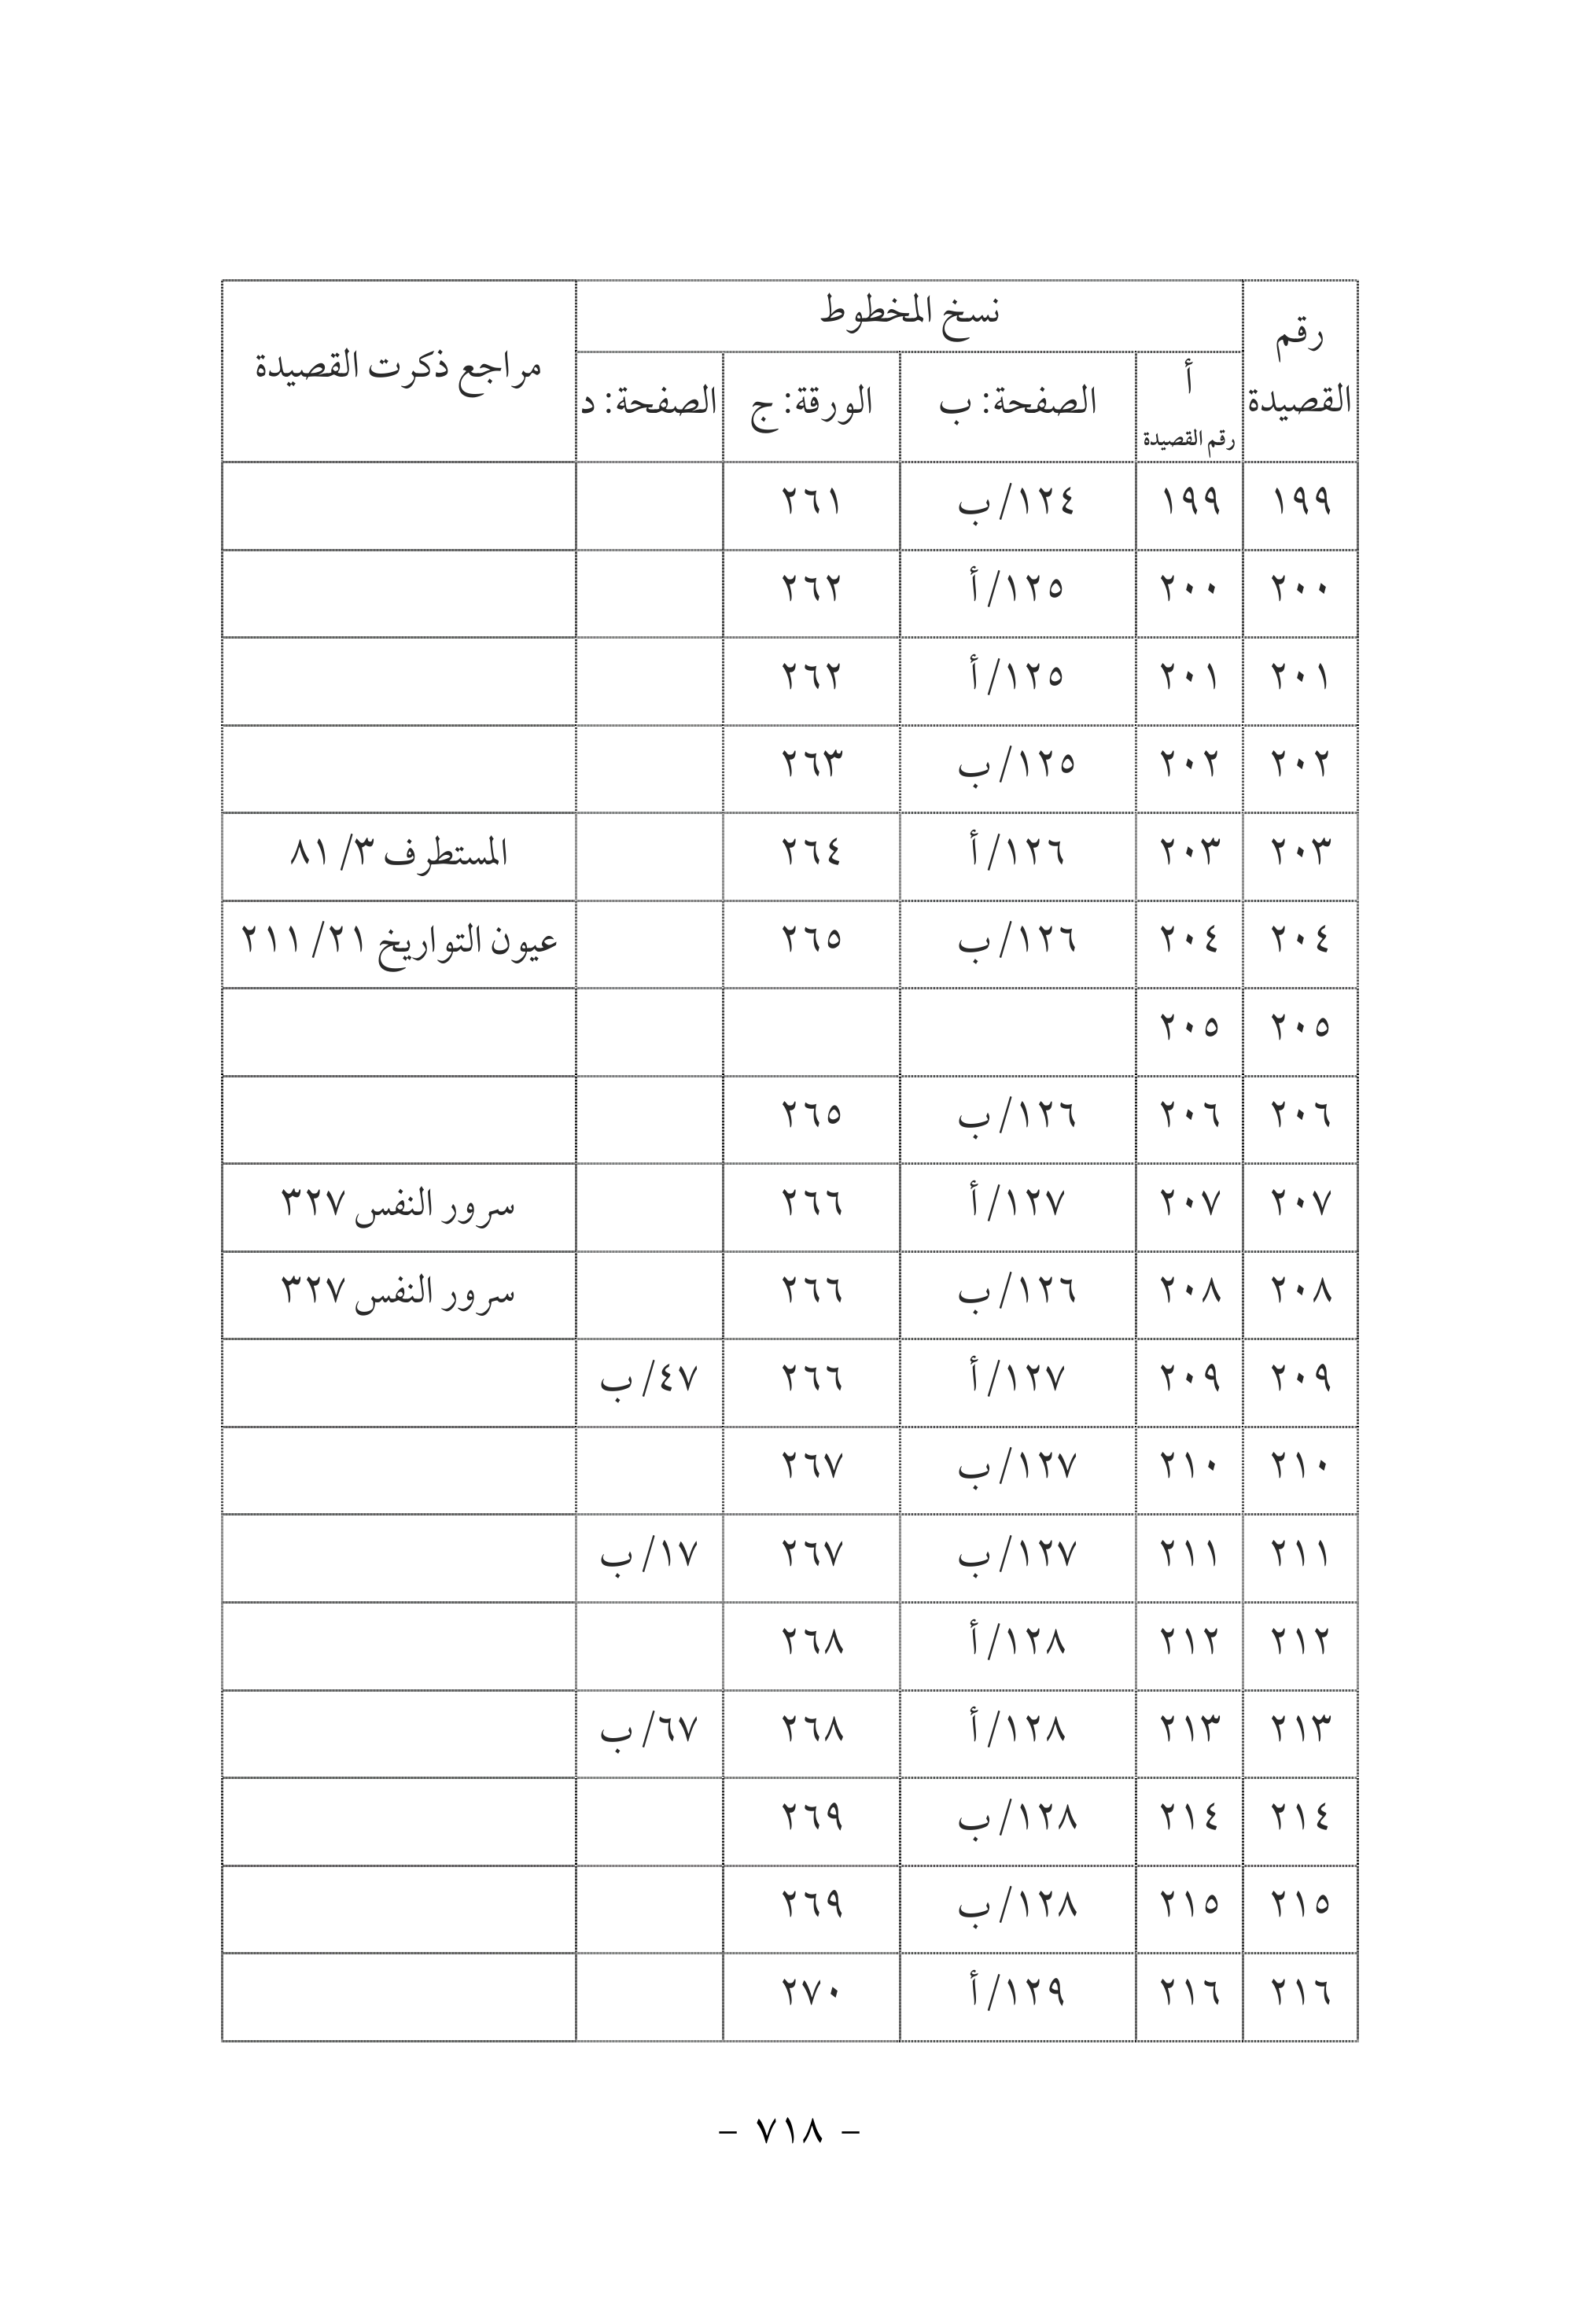 رقم القصيدة نسخ المخطوط مراجع ذكرت القصيدة
أ رقم القصيدة الصفحة: ب الورقة: ج الصفحة: د
١٩٩ ١٩٩ ١٢٤/ ب ٢٦١
٢٠٠ ٢٠٠ ١٢٥/ أ ٢٦٢
٢٠١ ٢٠١ ١٢٥/ أ ٢٦٢
٢٠٢ ٢٠٢ ١٢٥/ ب ٢٦٣
٢٠٣ ٢٠٣ ١٢٦/ أ ٢٦٤ المستطرف ٣/ ٨١
٢٠٤ ٢٠٤ ١٢٦/ ب ٢٦٥ عيون التواريخ ٢١/ ٢١١
٢٠٥ ٢٠٥
٢٠٦ ٢٠٦ ١٢٦/ ب ٢٦٥
٢٠٧ ٢٠٧ ١٢٧/ أ ٢٦٦ سرور النفس ٣٢٧
٢٠٨ ٢٠٨ ١٢٦/ ب ٢٦٦ سرور النفس ٣٢٧
٢٠٩ ٢٠٩ ١٢٧/ أ ٢٦٦ ٤٧/ ب
٢١٠ ٢١٠ ١٢٧/ ب ٢٦٧
٢١١ ٢١١ ١٢٧/ ب ٢٦٧ ١٧/ ب
٢١٢ ٢١٢ ١٢٨/ أ ٢٦٨
٢١٣ ٢١٣ ١٢٨/ أ ٢٦٨ ٦٧/ ب
٢١٤ ٢١٤ ١٢٨/ ب ٢٦٩
٢١٥ ٢١٥ ١٢٨/ ب ٢٦٩
٢١٦ ٢١٦ ١٢٩/ أ ٢٧٠
- ٧١٨ -